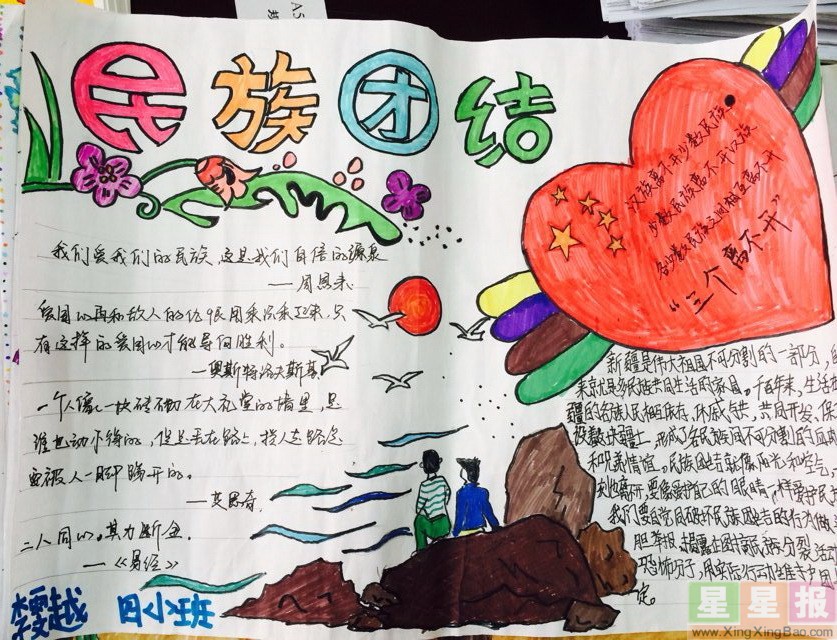 民族团结
我们爱我们的民族，这是我们自信的源泉
——周恩来
爱国心再和敌人的仇恨用乘法乘起来，只
有这样的爱国心才能导向胜利。
——奥斯特洛夫斯基
一个人像一块砖砌在大礼堂的墙里，是
谁也动不得的，但是丢在路上，挡人走路是
要被人一脚踢开的。
——艾思奇
二人同心，其力断金
——《易经》
李 越 四小班
汉族离不开少数民族
少数民族离不开汉族
各少数民族之间相互离不开
“三个离不开”
新疆是伟大祖国不可分割的一部分，
来就是多民族共同生活的家园。千百年来，生活
疆的各族人民相互依存，休戚与共，共同开发，保
极数块疆土，形成了各民族间不可分割的
和兄弟情谊。民族团结就像阳光和空气
利也离开，要像爱护自己的眼睛一样爱护民
我们要自觉同破坏民族团结的行为做
胆举报、揭露企图搞民族分裂活动
恐怖分子，用实际行动维
定。
A5
星星报
www.XingXingBao.com